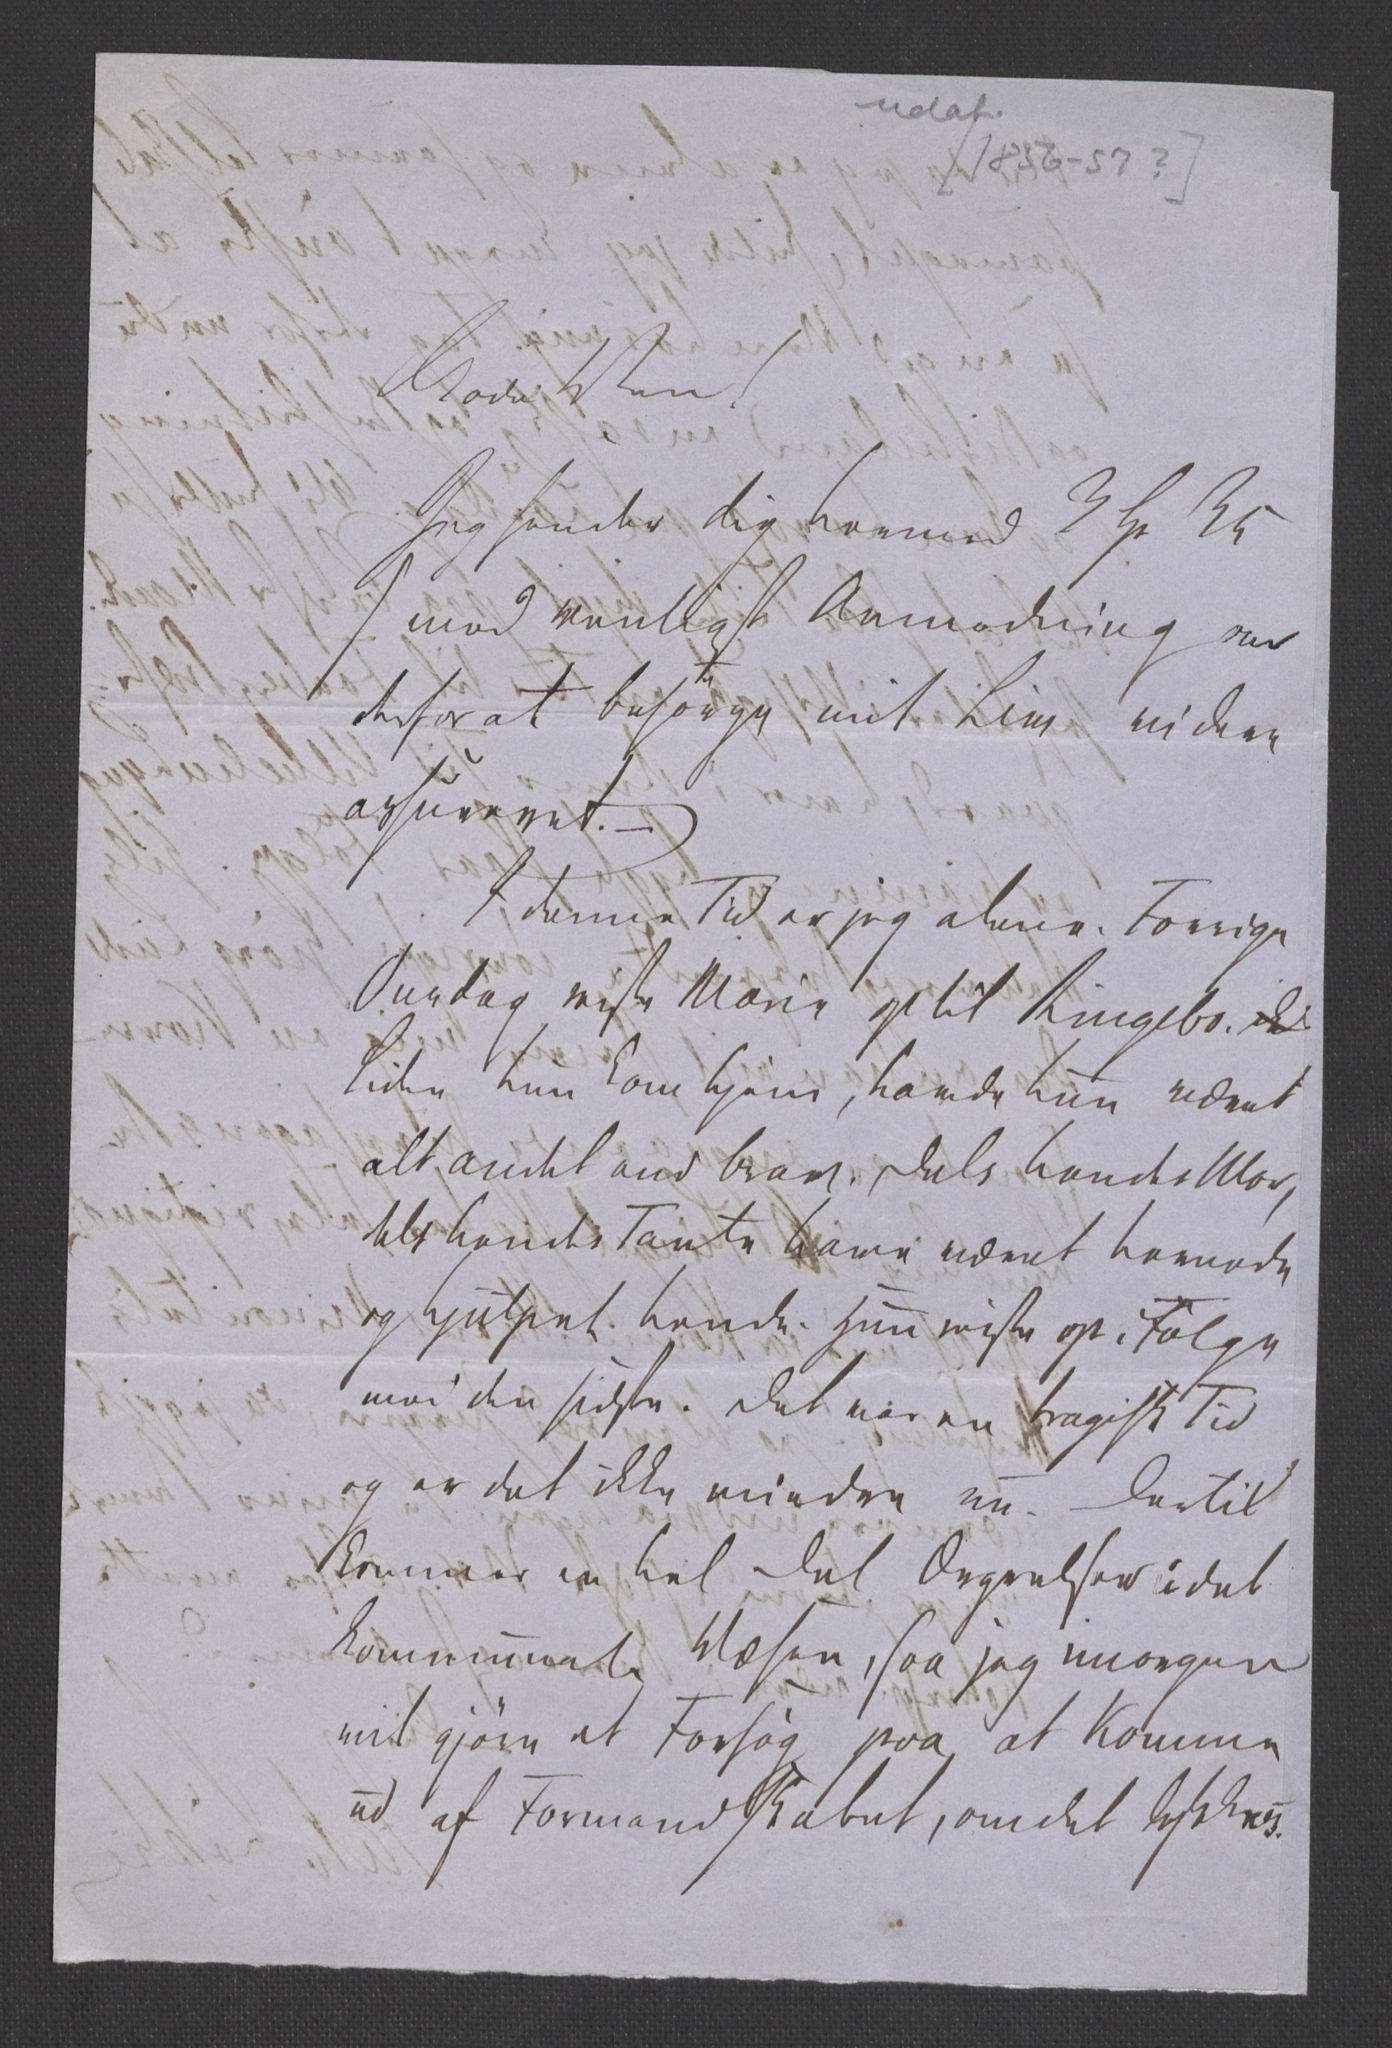 udat.
[1856-57?]
Gode Ven!
Jeg sender dig hermed 3 Sp 35
s med venligst Anmodning om
derfor at besörge mit Liv videre
assureret. —
I denne Tid er jeg alene. Forrige
Onsdag reiste Marie op til Ringebo.
Siden hun kom hjem, havde hun været
alt andet end brav. Dels hendes Mor,
dels hendes Tante have været hernede
og hjulpet hende. Hun reiste op i Fölge
med den sidste. Det var en tragisk Tid
og er det ikke mindre nu. Dertil
kommer en hel Del Ærgrelser i det
kommunale Væsen, saa jeg imorgen
vil gjöre et Forsög paa at komme
ud af Formandskabet, om det lykkes.